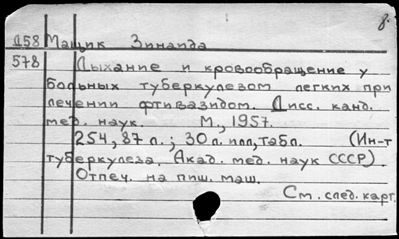 Д58 Мащик Зинаида
578 Дыхание и кровообращение у
больных туберкулезом легких при
лечении фтивазидом. Дисс. канд.
мед. наук. М., 1957.
254, 87 л.; 30 л. илл, табл. (Ин-т
туберкулеза. Акад. мед. наук СССР)
Отпеч. на пиш. маш.
См. след. карт.